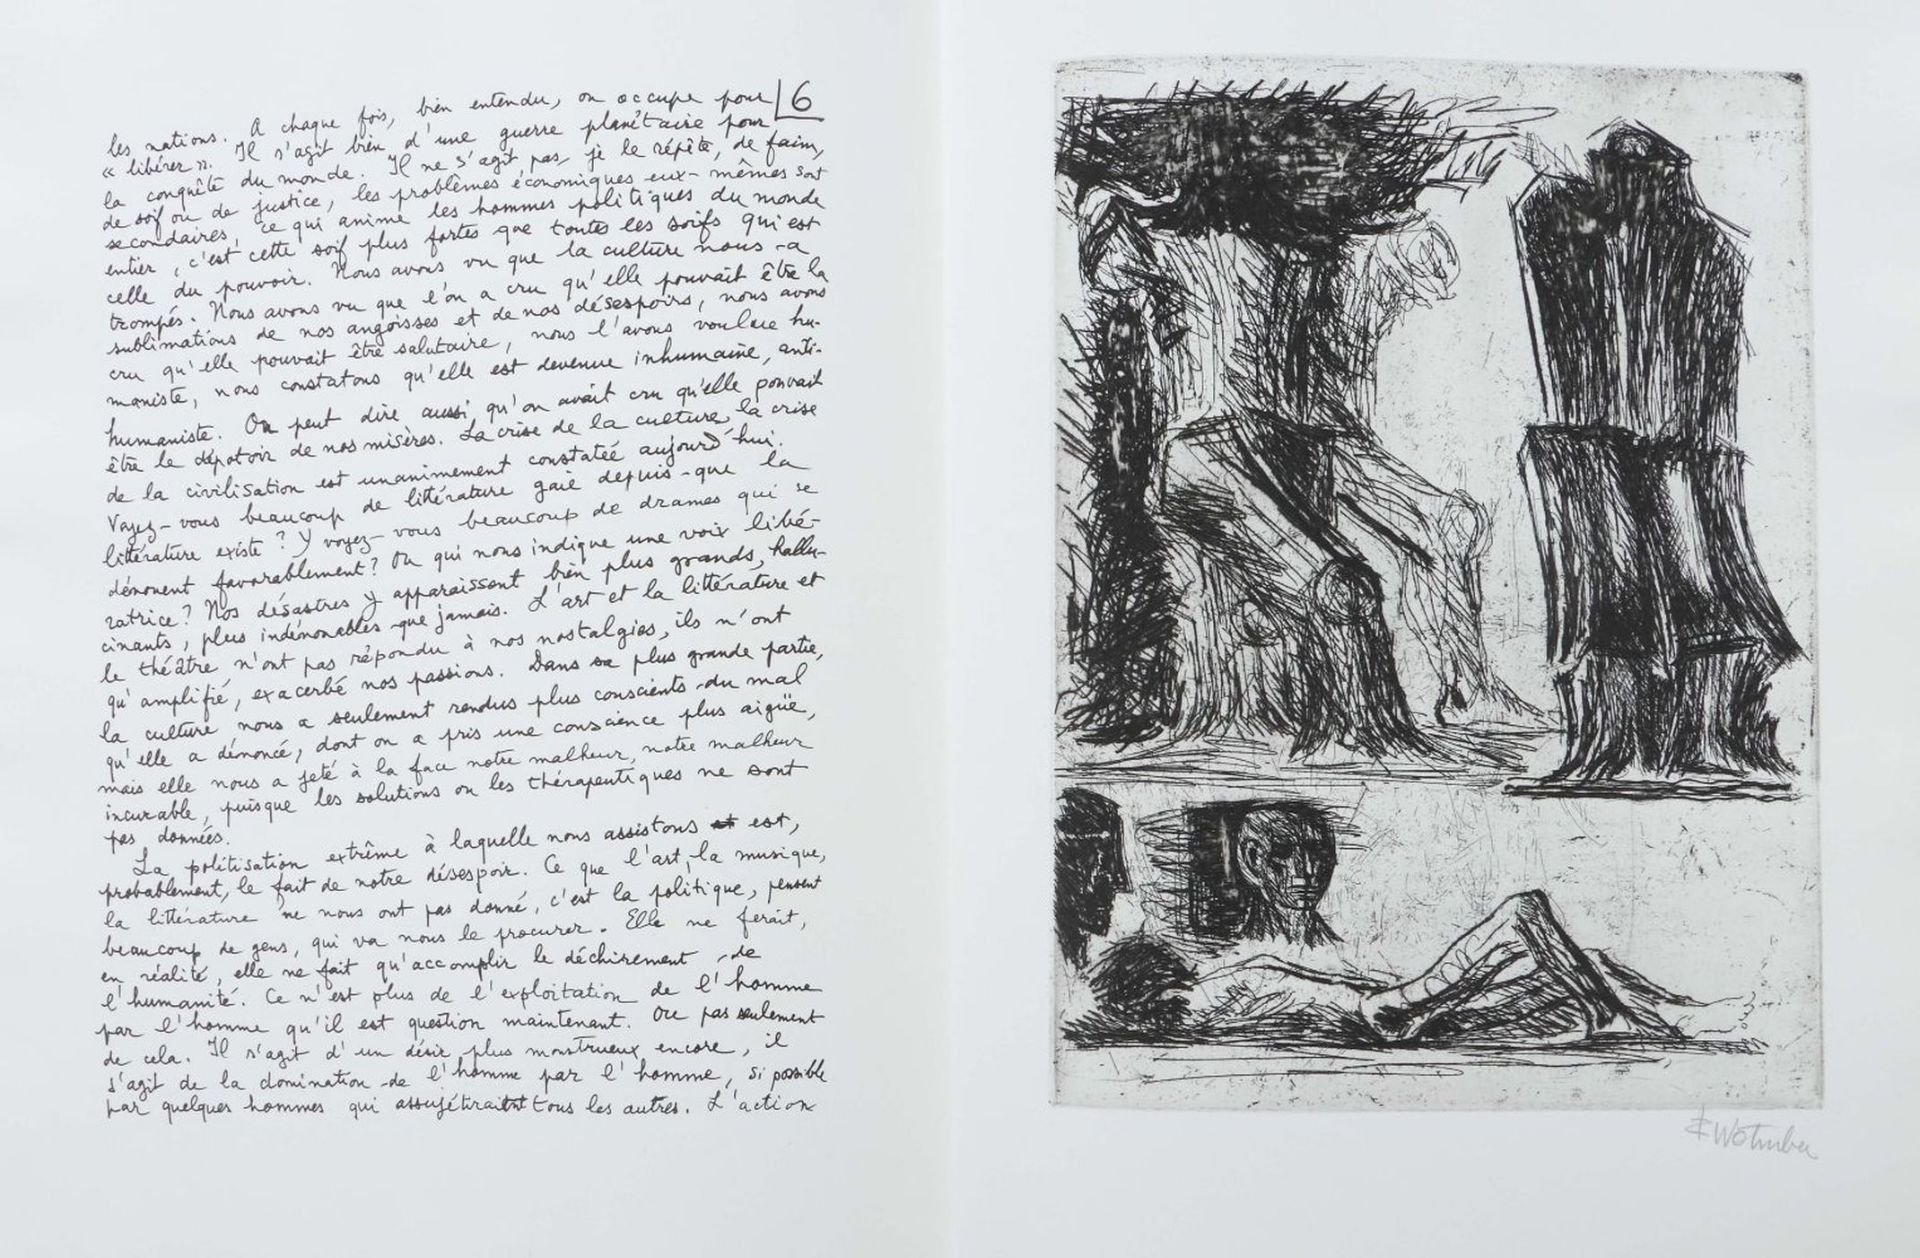 6
les nations. A chaque fois, bien entendu, on occupe pour
« libérer ». Il s'agit bien d'une guerre planétaire pour
la conquête du monde. Il ne s'agit pas, je le répête, de faim,
de soif ou de justice, les problèmes économiques eux-mêmes sont
secondaires, ce qui anime les hommes politiques du monde
entier, c'est cette soif plus fortes que toutes les soifs qui est
celle du pouvoir. Nous avons vu que la culture nous-a
trompés. Nous avons vu que l'on a cru qu'elle pouvait être la
sublimations de nos angoisses et de nos désespoirs, nous avons
cru qu'elle pouvait être salutaire, nous l'avons voulue hu-
maniste, nous constatons qu'elle est devenue inhumaine, anti-
humaniste. On peut dire aussi qu'on avait cru qu'elle pouvait
être le dépotoir de nos misères. La crise de la culture, la crise
de la civilisation est unanimement constatéé aujourd'hui.
Voyez-vous beaucoup de littérature gaie depuis-que la
littérature existe ? Y voyez-vous beaucoup de drames qui se
dénouent favorablement ? Ou qui nous indique une voix libé-
ratrice ? Nos désastres y apparaissent bien plus grands, hallu-
cinants, plus indénouables que jamais. L'art et la littérature et
le théâtre n'ont pas répondu à nos nostalgies, ils n'ont
qu'amplifié, exacerbé nos passions. Dans sa plus grande partie,
la culture nous a seulement rendus plus conscients du mal
qu'elle a dénoncé, dont on a pris une conscience plus aigüe,
mais elle nous a jeté à la face notre malheur, notre malheur
incurable, puisque les solutions ou les thérapeutiques ne sont
pas données.
La politisation extrême à laquelle nous assistons est,
probablement, le fait de notre désespoir. Ce que l'art, la musique,
la littérature ne nous ont pas donné, c'est la politique, pensent
beaucoup de gens, qui va nous le procurer. Elle ne ferait,
en réalité, elle ne fait qu'accomplir le déchirement de
l'humanité. Ce n'est plus de l'exploitation de l'homme
par l'homme qu'il est question maintenant. Ou pas seulement
de cela. Il s'agit d'un désir plus monstrueux encore, il
s'agit de la domination de l'homme par l'homme, si possible
par quelques hommes qui assujétiraient tous les autres. L'action
Wotruba